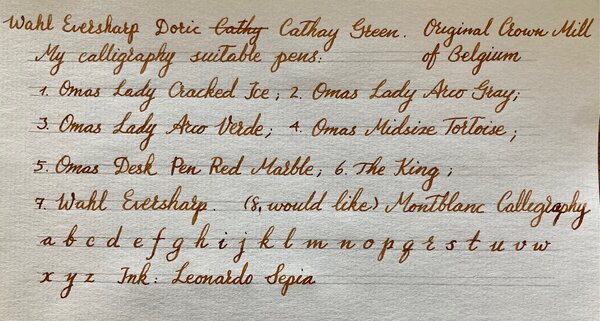 Wahl Eversharp Doric Cathy Cathay Green. Original Crown Mill
My calligraphy suitable pens: of Belgium
1. Omas Lady Cracked Ice; 2. Omas Lady Arco Gray;
3. Omas Lady Arco Verde; 4. Omas Midsize Tortoise;
5. Omas Desk Pen Red Marble; 6. The King;
7. Wahl Eversharp. (8, would like) Montblanc Callegraphy
a b c d e f g h i j k l m n o p q r s t u v w
x y z Ink: Leonardo Sepia